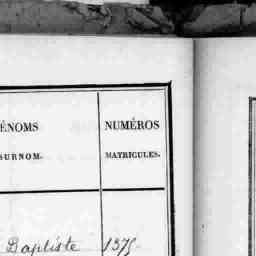 ÉNOMS NUMÉROS
SURNOM. MATRICULES.
Baptiste 1375